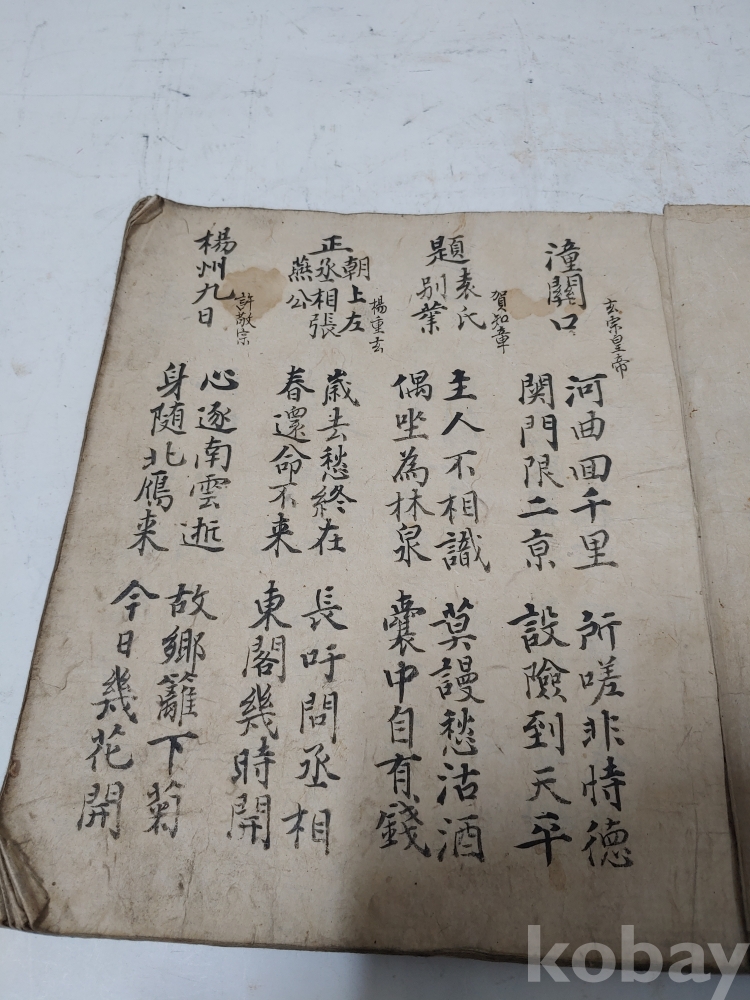 潼關口
玄宗皇帝
河曲回千里
関門限二京
所嗟非恃德
設險到天平
題袁氏
別業
賀知章
主人不相識
偶坐為林泉
莫謾愁沽酒
囊中自有錢
正朝上左
丞相張
燕公
楊重玄
歲去愁終在
春還命不来
長吁問丞相
東閣幾時開
楊州九日
許敬宗
心逐南雲逝
身随北鴈来
故鄉籬下菊
今日幾花開
kobay